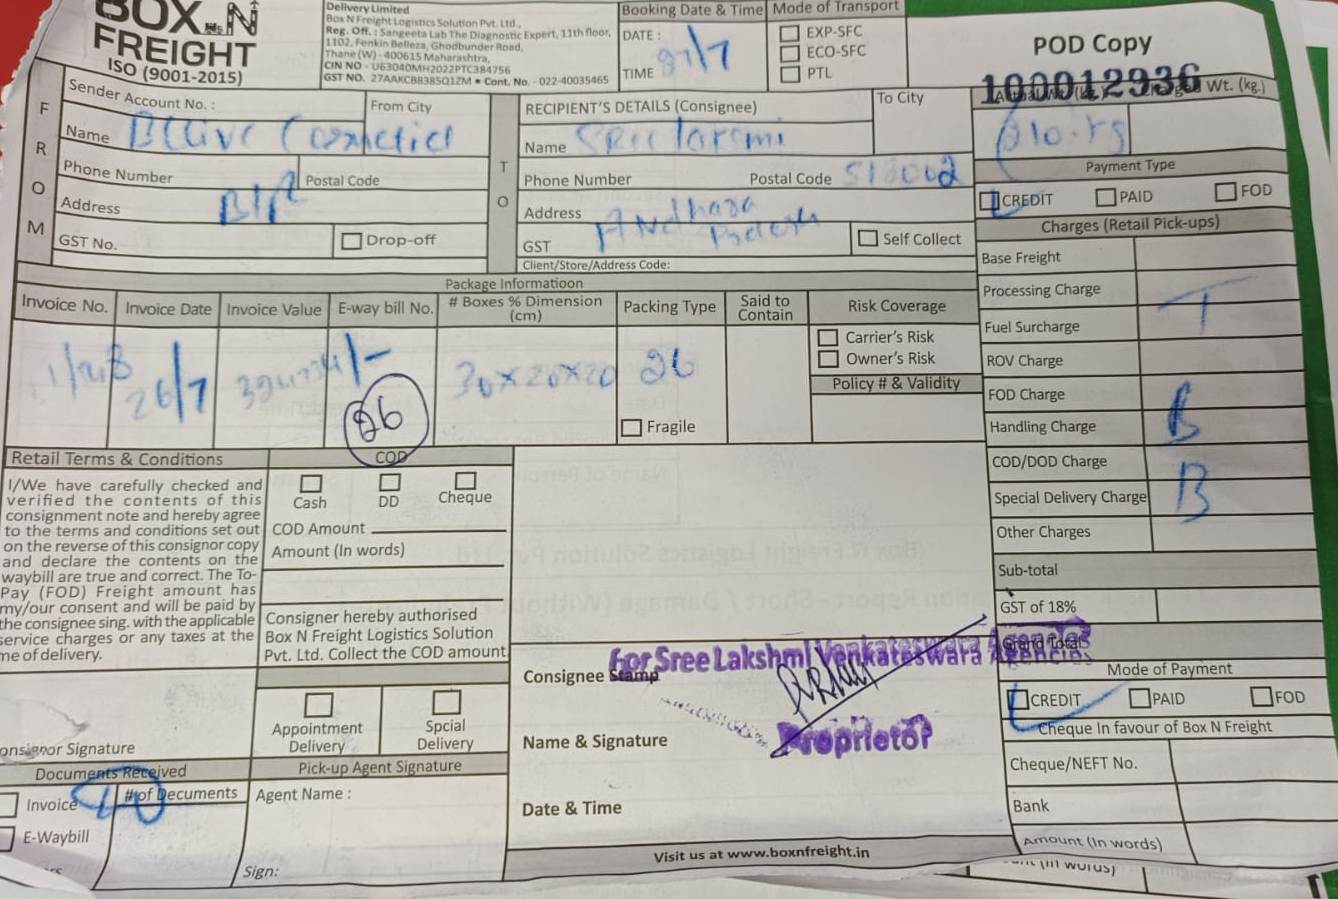 BOX N
FREIGHT
ISO (9001-2015)
Delivery Limited
Box N Freight Logistics Solution Pvt. Ltd.,
Reg. Off. : Sangeeta Lab The Diagnostic Expert, 11th floor,
1102, Fenkin Belleza, Ghodbunder Road,
Thane (W) - 400615 Maharashtra,
CIN NO - U63040MH2022PTC384756
GST NO. 27AAKCB8385Q1ZM • Cont. No. - 022-40035465
Booking Date & Time
DATE :
TIME
Mode of Transport
EXP-SFC
ECO-SFC
PTL
POD Copy
100012936
Wt. (kg.)
FROM
Sender Account No. :
From City
Name
Phone Number
Postal Code
Address
GST No.
Drop-off
TO
RECIPIENT'S DETAILS (Consignee)
To City
Name
Phone Number
Postal Code 518002
Address Andhara
Pradesh
GST
Self Collect
Client/Store/Address Code:
Payment Type
CREDIT PAID FOD
Charges (Retail Pick-ups)
Base Freight
Processing Charge
Fuel Surcharge
T
ROV Charge
FOD Charge
Handling Charge
B
COD/DOD Charge
Special Delivery Charge
B
Other Charges
Sub-total
GST of 18%
Grand Total
Package Informatioon
Invoice No. Invoice Date Invoice Value E-way bill No. # Boxes % Dimension (cm) Packing Type Said to Contain Risk Coverage
26/7
30x20x20
26
26
Carrier's Risk
Owner's Risk
Policy # & Validity
Fragile
Retail Terms & Conditions
I/We have carefully checked and
verified the contents of this
consignment note and hereby agree
to the terms and conditions set out
on the reverse of this consignor copy
and declare the contents on the
waybill are true and correct. The To-
Pay (FOD) Freight amount has
my/our consent and will be paid by
the consignee sing. with the applicable
service charges or any taxes at the
me of delivery.
COD
Cash DD Cheque
COD Amount
Amount (In words)
Consigner hereby authorised
Box N Freight Logistics Solution
Pvt. Ltd. Collect the COD amount.
Appointment Delivery
Spcial Delivery
For Sree Lakshmi Venkateswara Agencies
Consignee Stamp
Proprietor
Name & Signature
Date & Time
Mode of Payment
CREDIT PAID FOD
Cheque In favour of Box N Freight
Cheque/NEFT No.
Bank
Amount (In words)
onsignor Signature
Documents Received
Invoice
# of Decuments
E-Waybill
Pick-up Agent Signature
Agent Name :
Sign:
Visit us at www.boxnfreight.in
(In words)